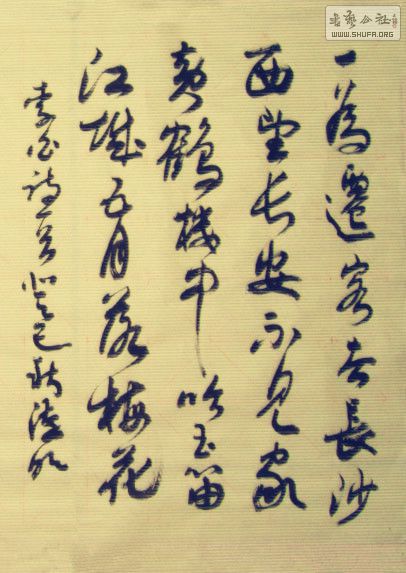 一为迁客去长沙
西望长安不见家
黄鹤楼中吹玉笛
江城五月落梅花
李白诗一首
书艺公社
WWW.SHUFA.ORG